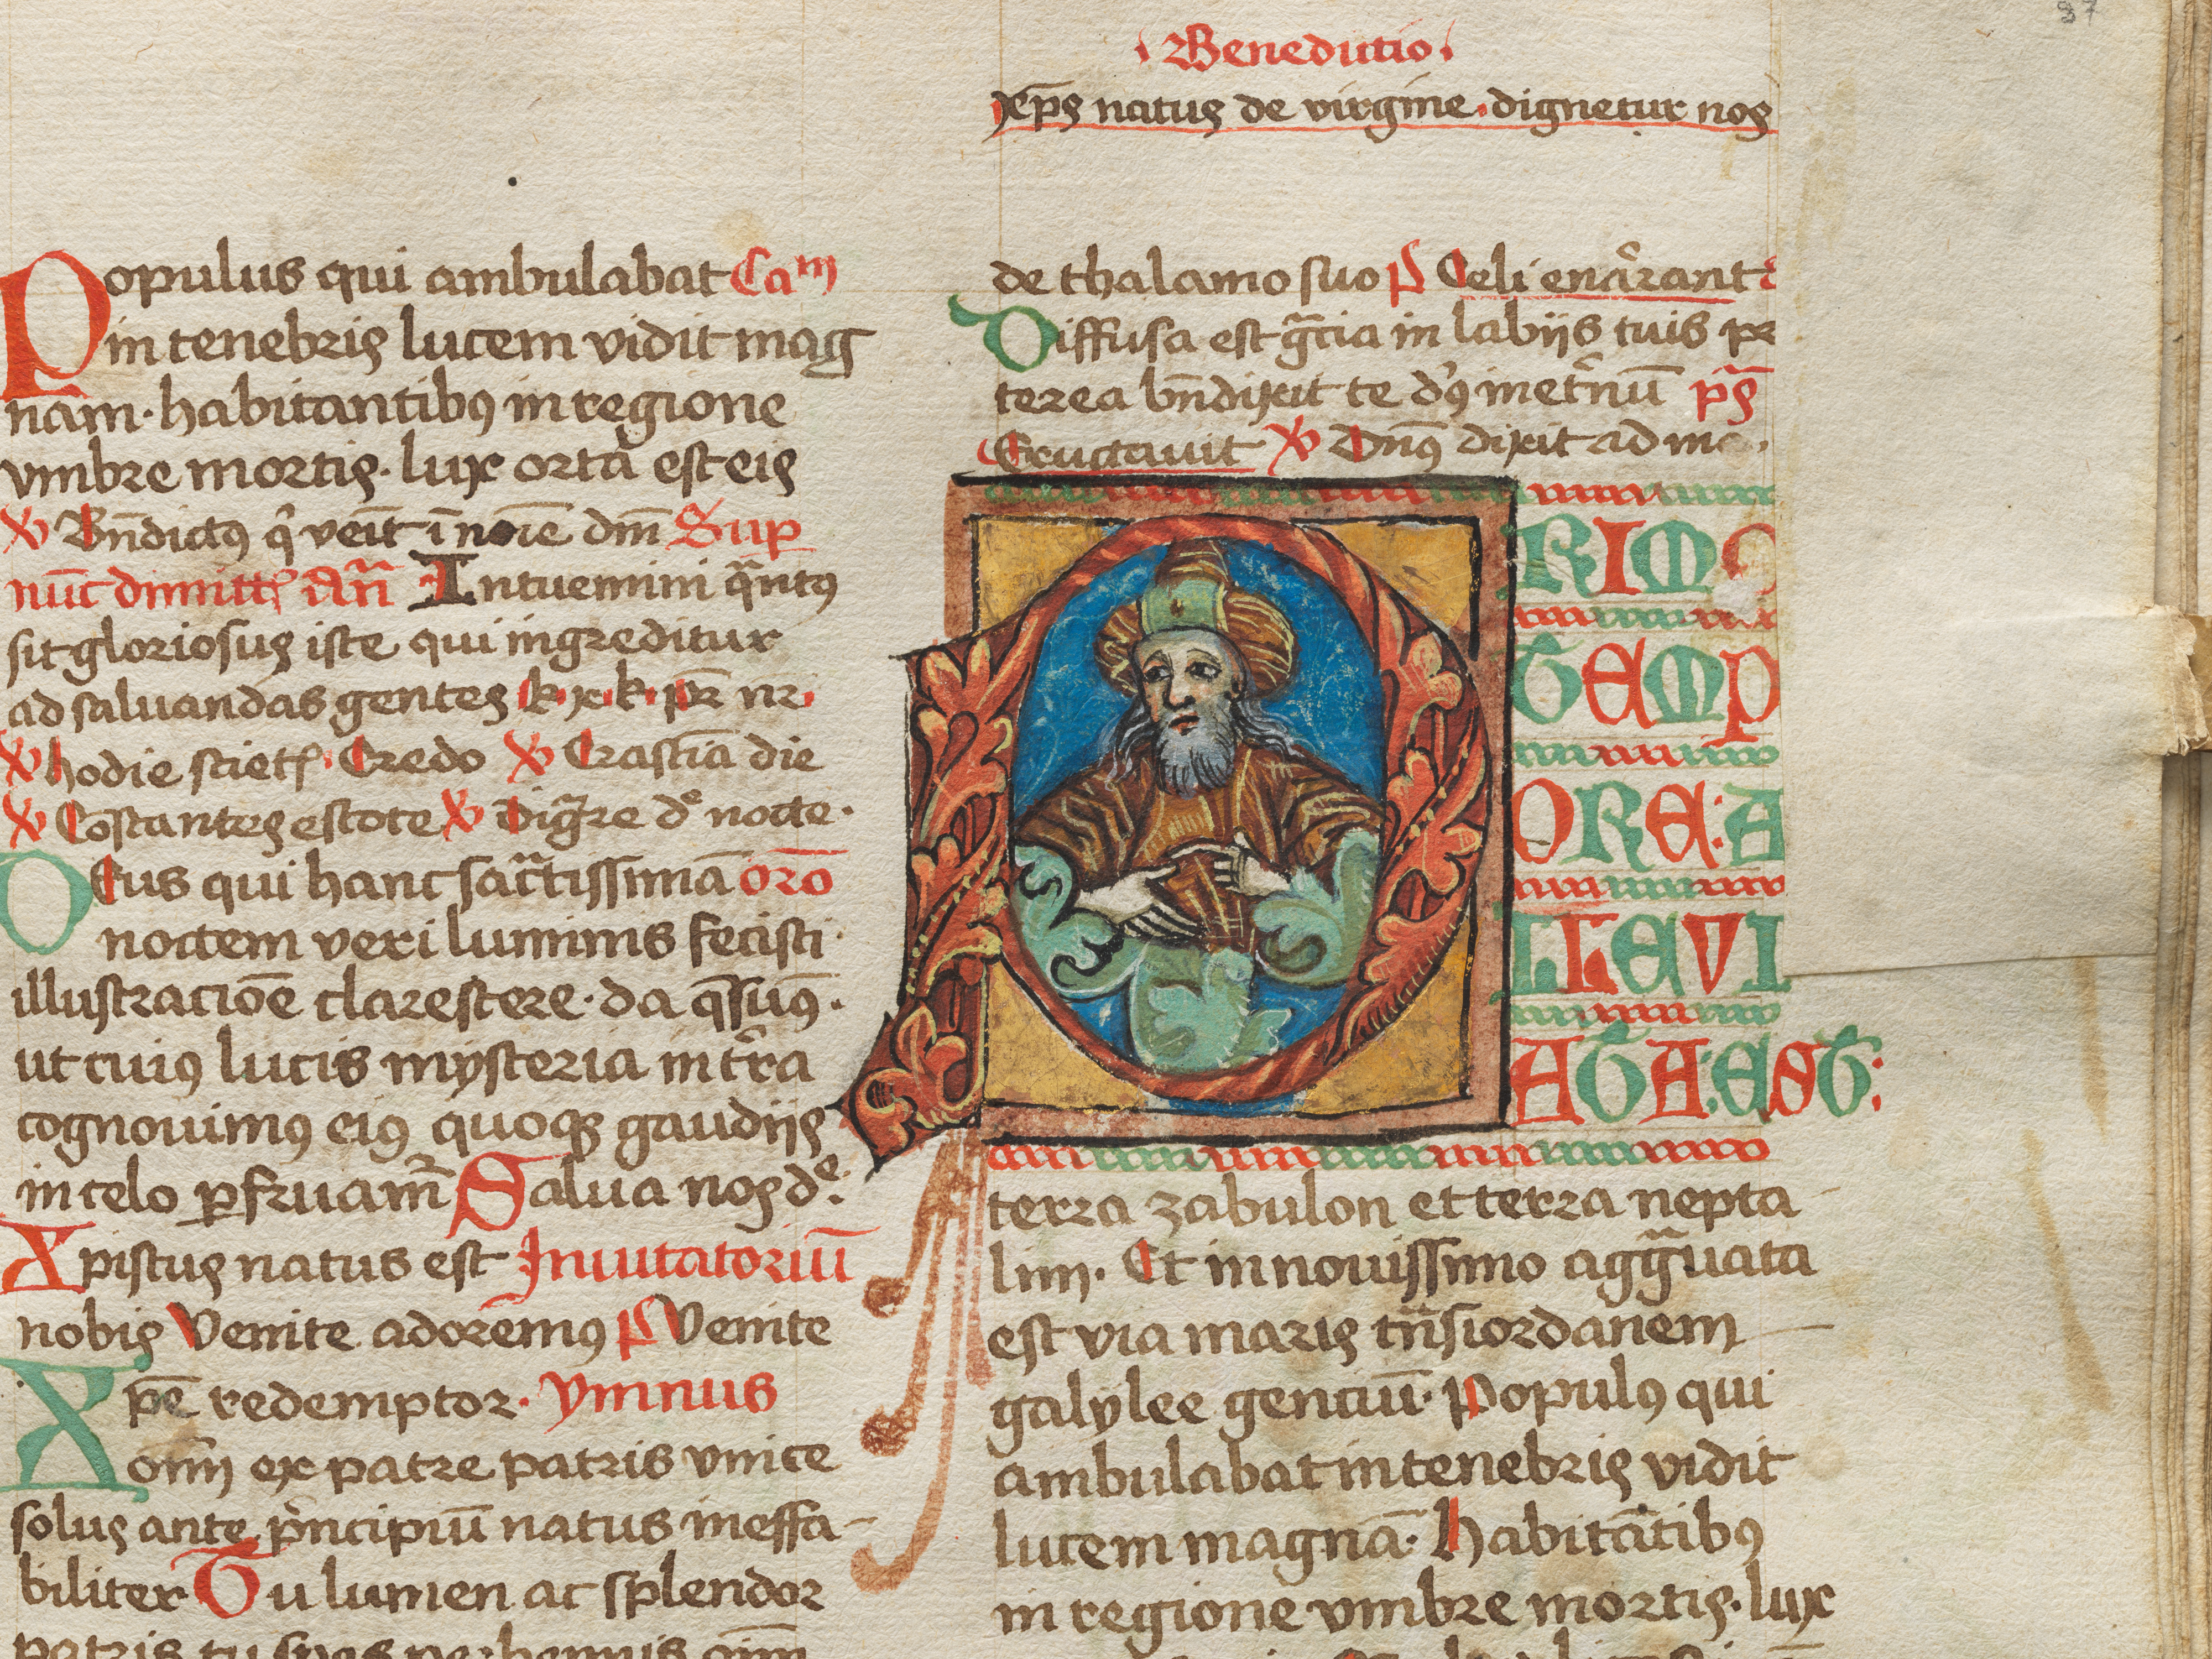 Populus qui ambulabat Cam
in tenebris lucem vidit mag
nam. habitantibꝰ in regione
vmbre mortis. lux orta est eis
℣ Bn̄dictꝰ q̇ veīt ī noīe dn̄i Sup
nūc dimitt̄ Añ Intuemini qͣntꝰ
sit gloriosus iste qui ingreditur
ad saluandas gentes k. x. k. pr̄ nr̄.
℣ hodie sciet Credo ℣ Crastīa die
℣ Cōstantes estote ℣ de nocte.
Deus qui hanc sacͣtissimā oro
noctem veri luminis fecisti
illustraciōe clarescere. da q̄sumꝰ.
ut cuiꝰ lucis mysteria in tr̄ra
cognouimꝰ eiꝰ quoqꝫ gaudijs
in celo ꝑfruam̄ Salua nos dͤ:
Xpistus natus est Inuitatoriū
nobis Venite adoremꝰ ps Venite
Xpē redemptor. ymnus
om̄ ex patre patris vnice
solus ante pͥncipiū natus ineffa-
biliter Tu lumen ac splendor
patris tu spes perhennis om̄
Benedictio
xp̄s natus de virgine. dignetur nos
de thalamo suo ps Celi enarrant
Diffusa est gͣcia in labijs tuis pr
terea bn̄dixit te dꝰ in et̄nū ps
Eructauit ℣ Dn̄s dixit ad me.
PRIMO
TEMP
ORE: A
LLEVI
ATA: EST:
terra zabulon et terra nepta-
lim. Et in nouissimo aggͣuata
est via maris tn̄siordanem
galylee genciū. Populꝰ qui
ambulabat in tenebris vidit
lucem magnā. Habitātibꝰ
in regione vmbre mortis. lux